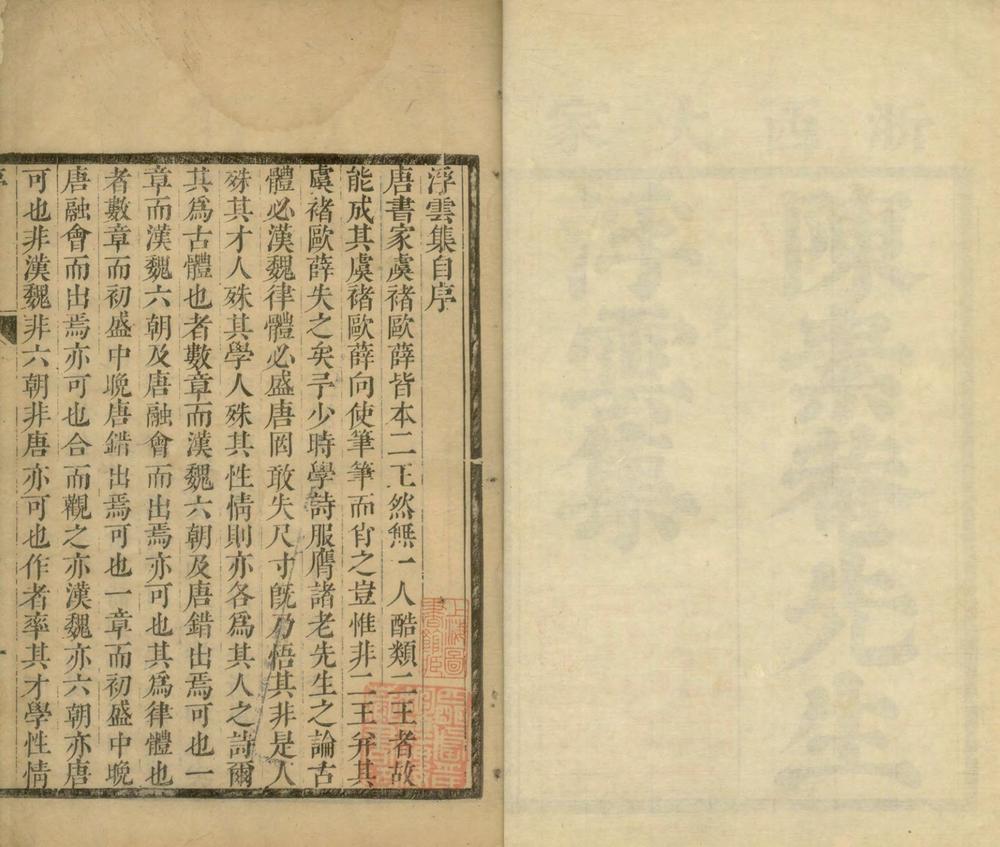 浮雲集自序
唐書家虞褚歐薛皆本二王然無一人酷類二王者故
能成其虞褚歐薛向使筆筆而肖之豈惟非二王弁其
虞褚歐薛失之矣予少時學詩服膺諸老先生之論古
體必漢魏律體必盛唐罔敢失尺寸旣乃悟其非是人
殊其才人殊其學人殊其性情則亦各爲其人之詩爾
其爲古體也者數章而漢魏六朝及唐錯出焉可也一
章而漢魏六朝及唐融會而出焉亦可也其爲律體也
者數章而初盛中晚唐錯出焉可也一章而初盛中晚
唐融會而出焉亦可也合而觀之亦漢魏亦六朝亦唐
可也非漢魏非六朝非唐亦可也作者率其才學性情
序
一
上海圖
書館藏
浙西大家
先生
浮雲集